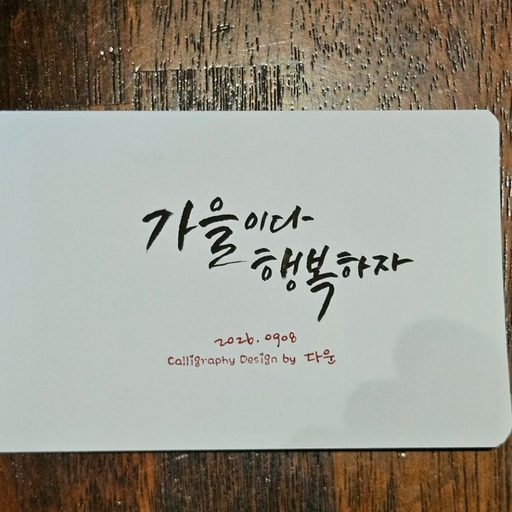 가을이다
행복하자
2026.0908
Calligraphy Design by 다운